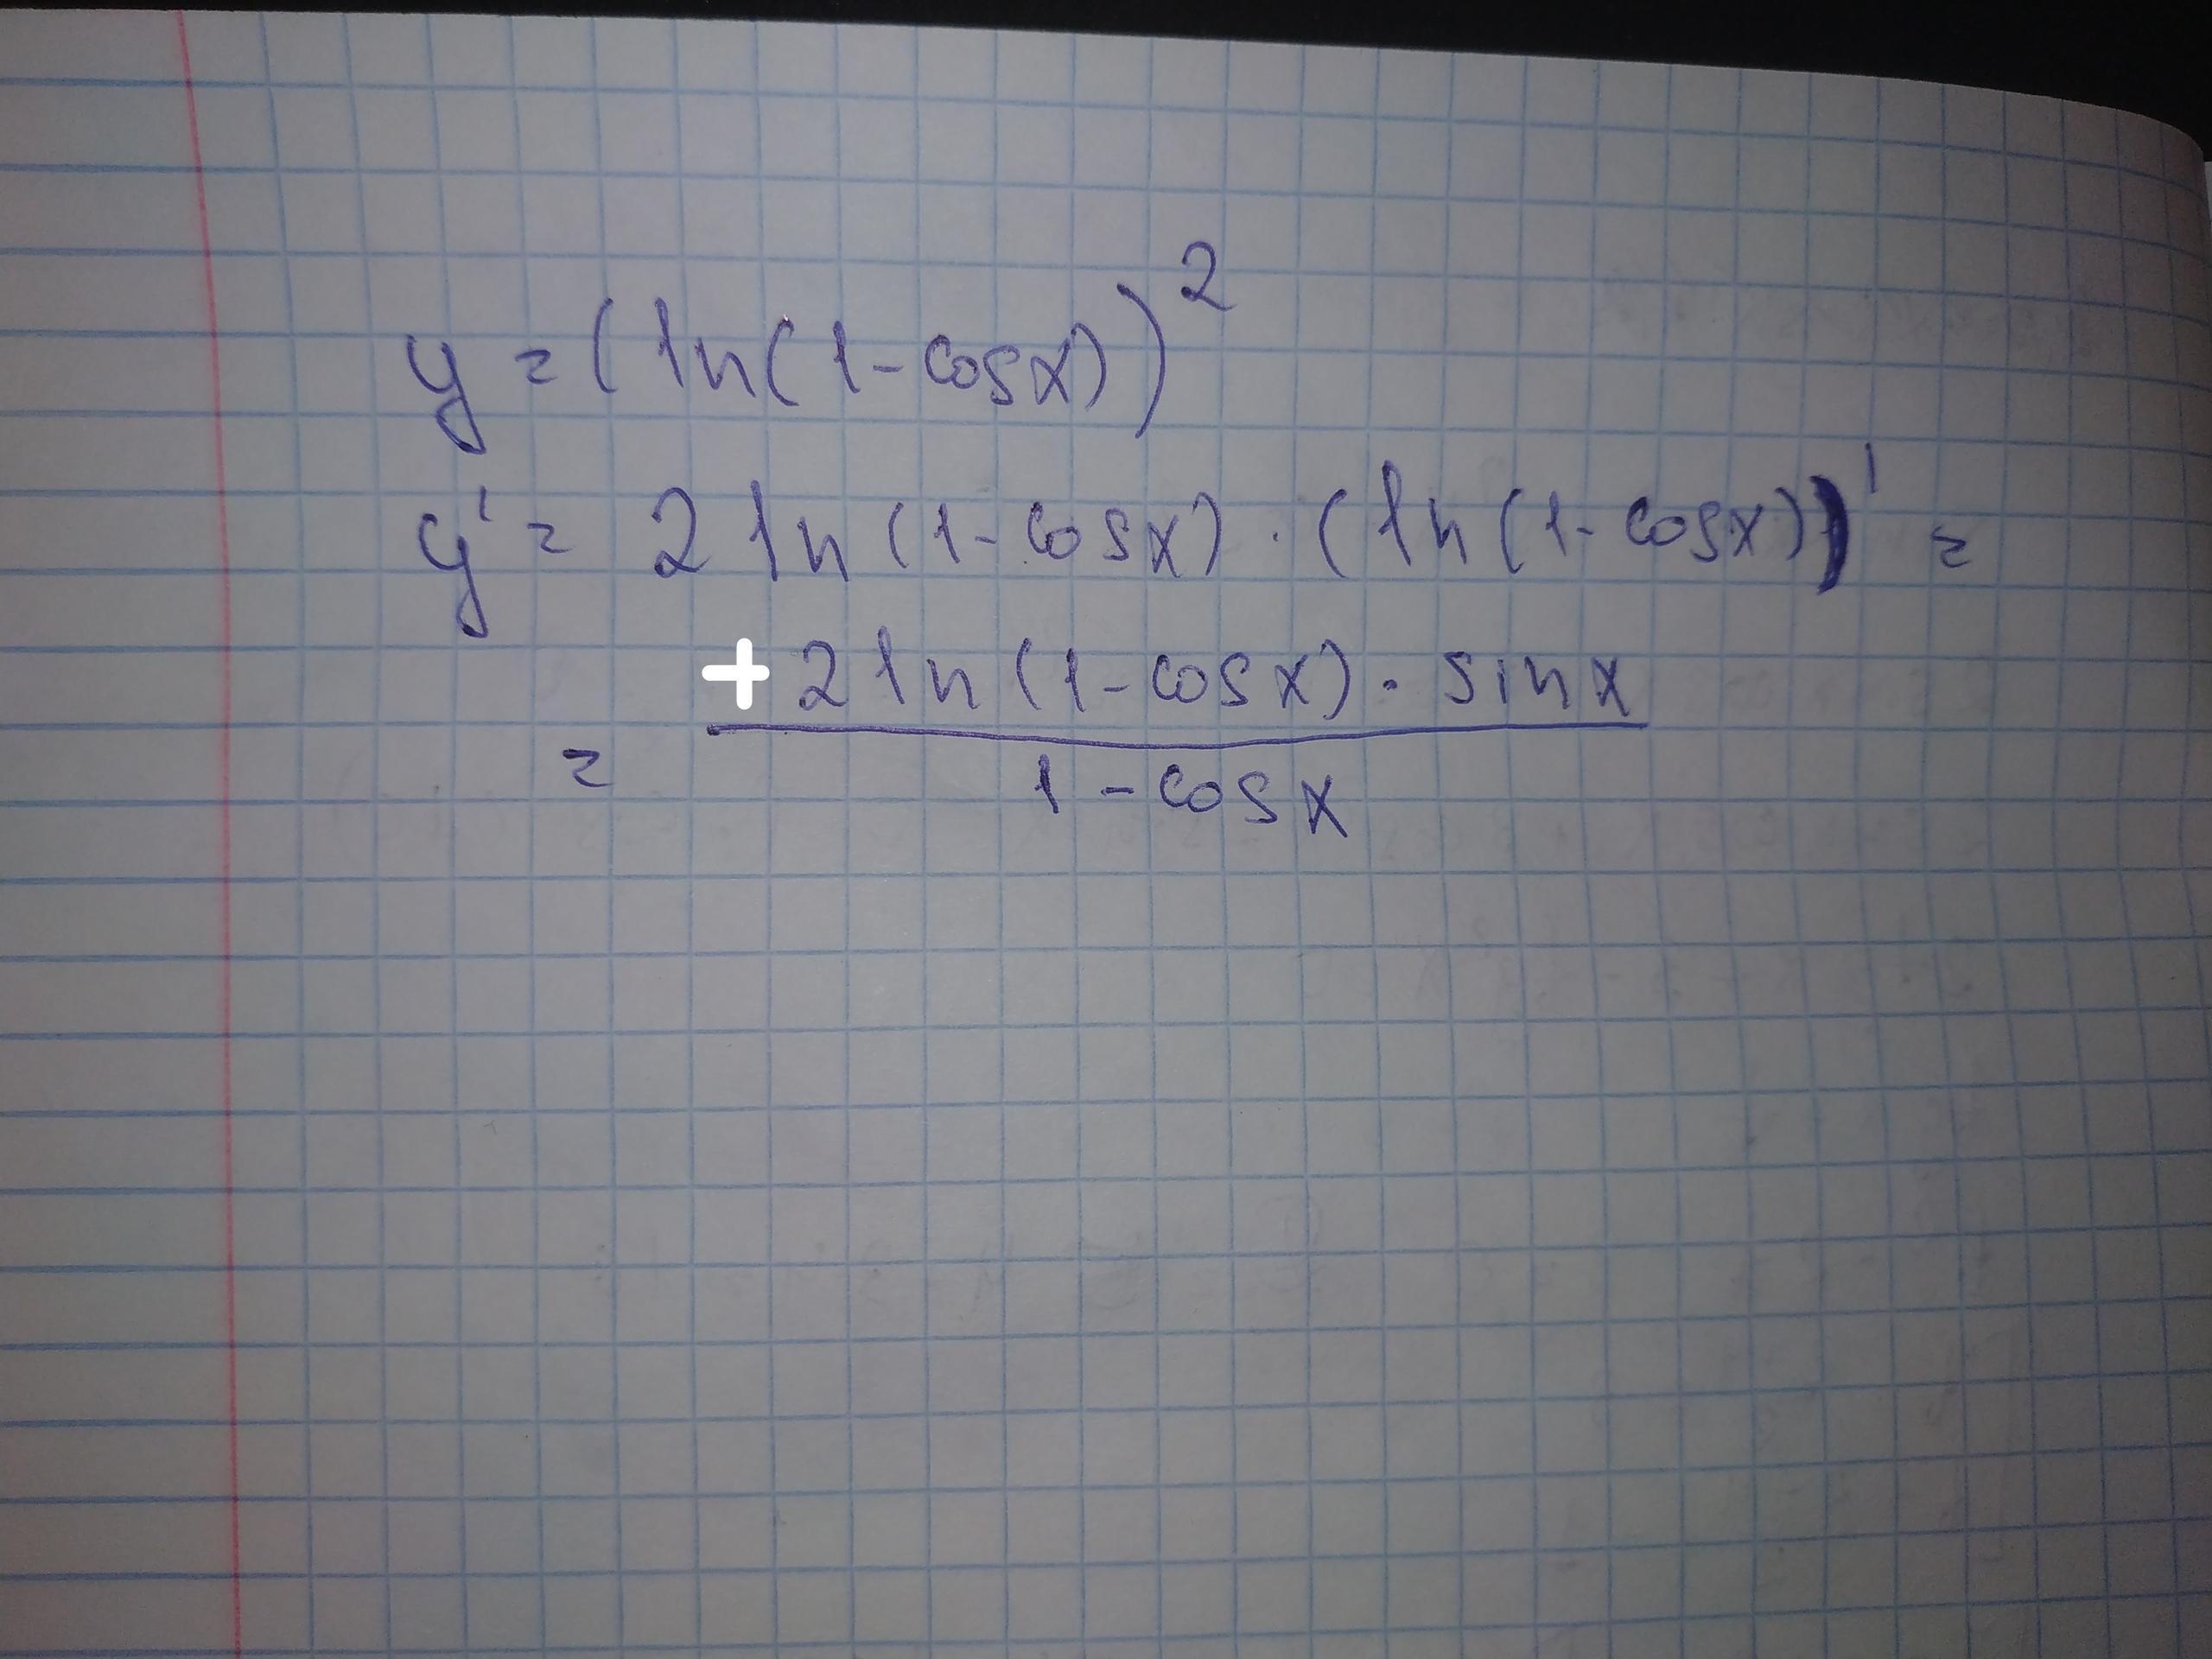 y = (ln(1-cosx))²
y' = 2 ln(1-cosx) · (ln(1-cosx))' =
= + 2 ln(1-cosx) · sinx / 1-cosx